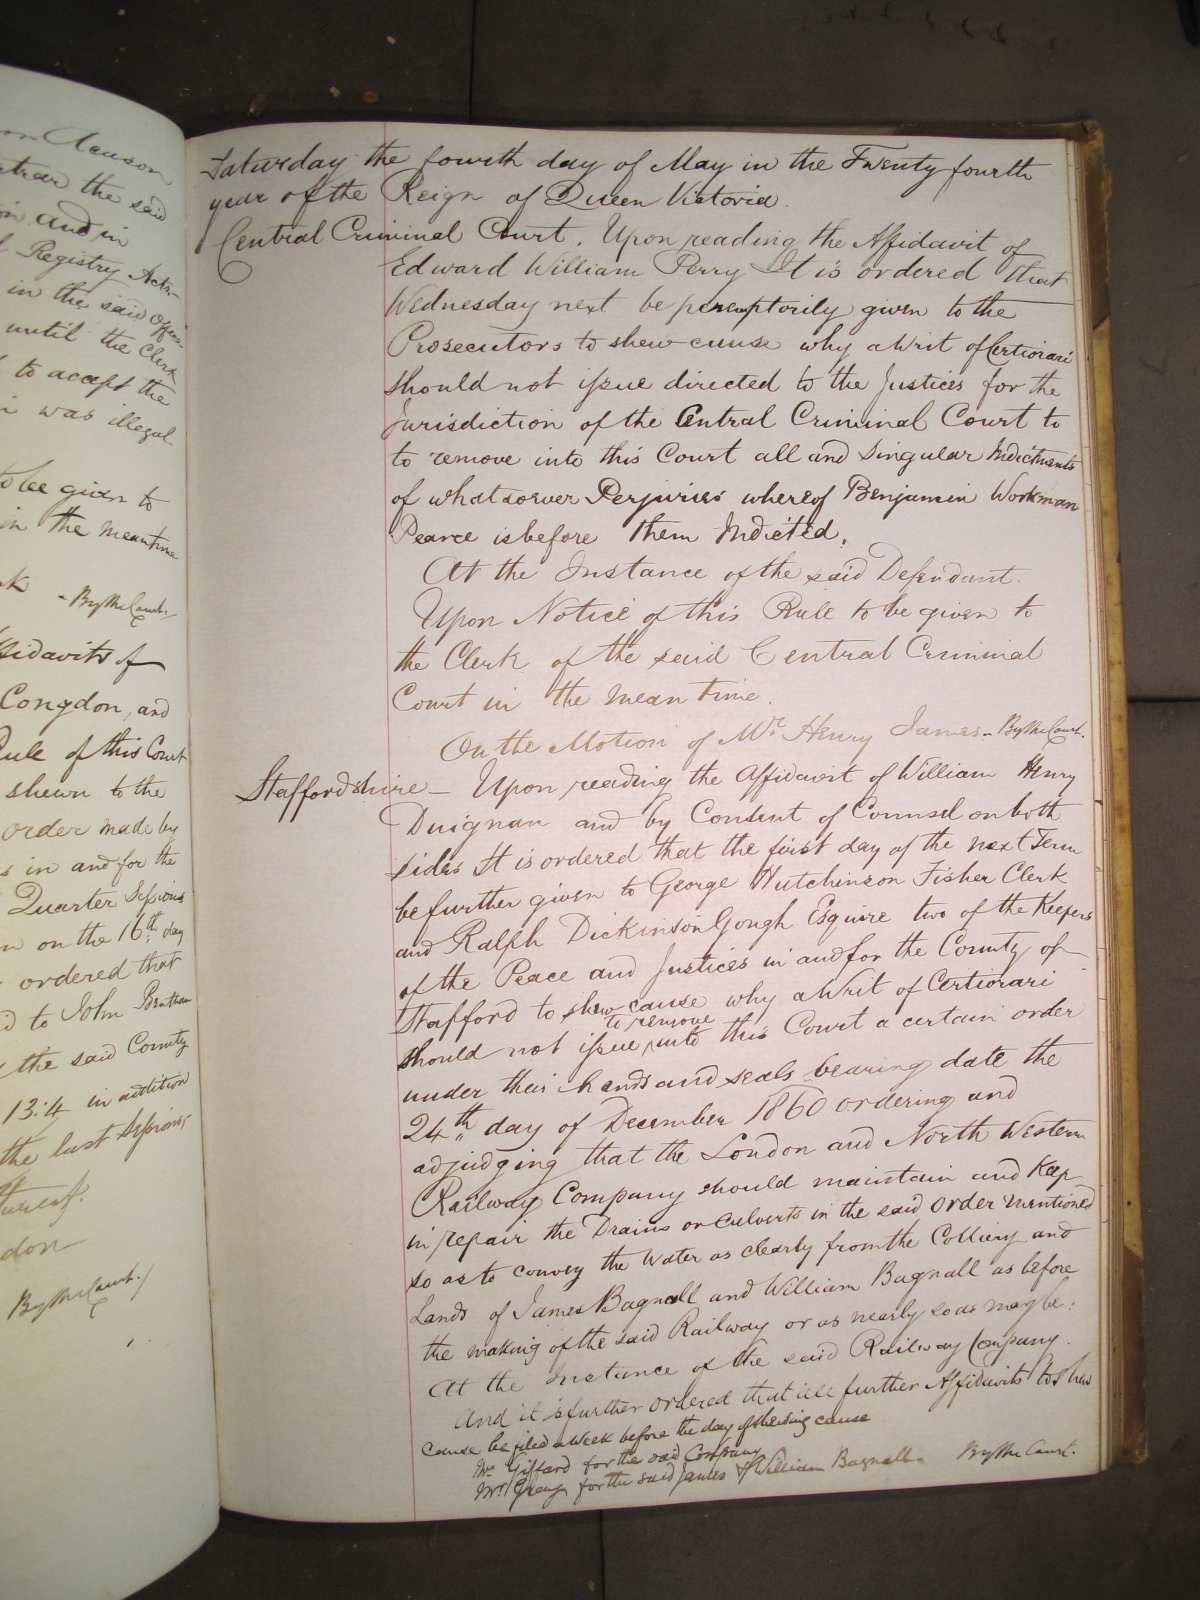 on and in
Registry Acts
in the said Office
until the Clerk
to accept the
was illegal
to be given to
in the meantime
By the Court.
Affidavits of
Congdon, and
Rule of this Court
shewn to the
order made by
s in and for the
Quarter Sessions
on the 16th day
ordered that
to John Bentham
the said County
13:4 in addition
the last Sessions
thereof.
don
By the Court.
Saturday the fourth day of May in the Twenty fourth
year of the Reign of Queen Victoria.
Central Criminal Court. Upon reading the Affidavit of
Edward William Perry It is ordered that
Wednesday next be peremptorily given to the
Prosecutors to shew cause why a Writ of Certiorari
should not issue directed to the Justices for the
Jurisdiction of the Central Criminal Court to
to remove into this Court all and singular Indictments
of whatsoever Perjuries whereof Benjamin Workman
Pearce is before them Indicted.
At the Instance of the said Defendant.
Upon Notice of this Rule to be given to
the Clerk of the said Central Criminal
Court in the mean time.
On the Motion of Mr. Henry James - By the Court.
Staffordshire - Upon reading the Affidavit of William Henry
Duignan and by Consent of Counsel on both
sides It is ordered that the first day of the next Term
be further given to George Hutchinson Fisher Clerk
and Ralph Dickinson Gough Esquire two of the Keepers
of the Peace and Justices in and for the County of
Stafford to shew cause why a Writ of Certiorari
should not issue to remove into this Court a certain order
under their hands and seals bearing date the
24th day of December 1860 ordering and
adjudging that the London and North Western
Railway Company should maintain and Keep
in repair the Drains or culverts in the said order mentioned
so as to convey the water as clearly from the Colliery and
Lands of James Bagnall and William Bagnall as before
the making of the said Railway or as nearly so as may be:
At the Instance of the said Railway Company.
And it is further ordered that all further Affidavits to shew
cause be filed a week before the day of shewing cause
Mr. Giffard for the said Company
Mr. Gray for the said James & William Bagnall. By the Court.